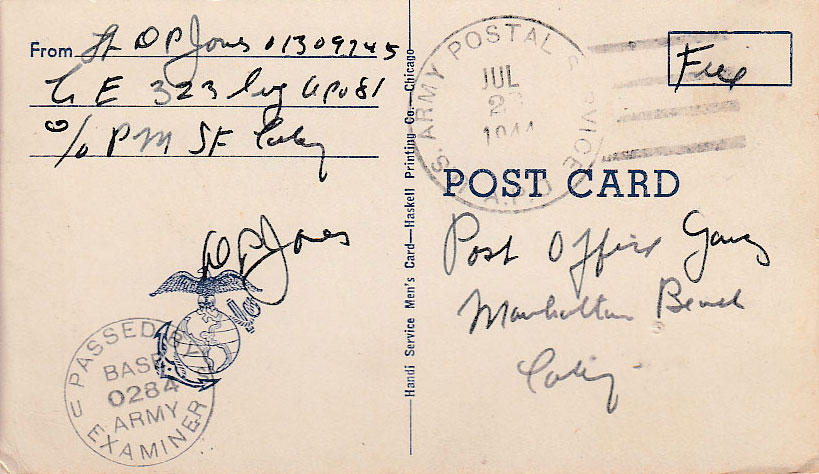 From Lt D P Jones 01309745
Co E 323 Inf APO 81
c/o PM SF Calif
D P Jones
PASSED BY
BASE
0284
ARMY
EXAMINER
Handi Service Men's Card—Haskell Printing Co.—Chicago
U.S. ARMY POSTAL SERVICE
JUL
1944
A.P.O.
Free
POST CARD
Post Office Gang
Manhattan Beach
Calif